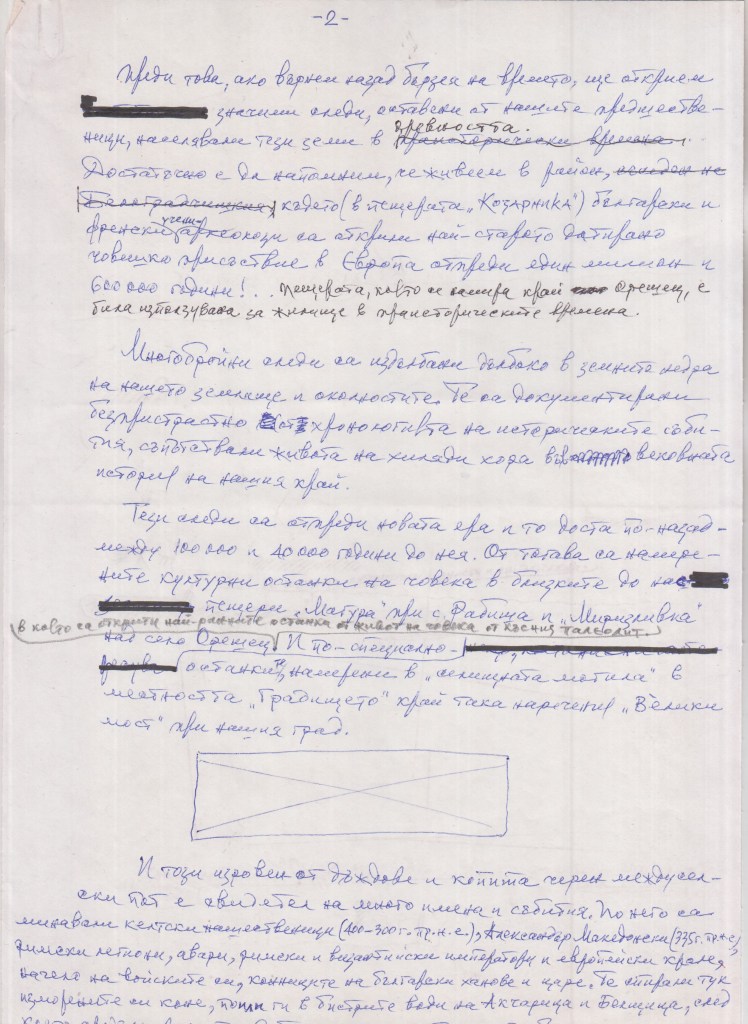 -2-
Преди това, ако върнем назад бързея на времето, ще открием
значими следи, оставени от нашите предшестве-
ници, населявали тези земи в древността.
праисторически времена
Достатъчно е да напомним, че живеем в район,
Белоградчишкия, където (в пещерата „Козарника") български и
френски учени-археолози са открили най-старото датирано
човешко присъствие в Европа отпреди един милион и
600 000 години!.. Пещерата, която се намира край Орешец, е
била използувана за жилище в праисторическите времена.
Многобройни следи са издълбани дълбоко в земните недра
на нашето землище и околностите. Те са документирали
безпристрастно хронологията на историческите съби-
тия, съпътствали живота на хиляди хора в вековната
история на нашия край.
Тези следи са отпреди новата ера и то доста по-назад-
между 100 000 и 40 000 години до нея. От тогава са намере-
ните културни останки на човека в близките до нас
пещери „Магура" при с. Рабиша и „Мирizливка"
в която са открити най-ранните останки от живот на човека от късния палеолит.
над село Орешец И по-специално-
останки, намерени в „селищната могила" в
местността „Градището" край така наречения „Велики
мост" при нашия град.
И този изровен от дъждове и копита черен междусел-
ски път е свидетел на много имена и събития. По него са
минавали келтски нашественици (400-300г. пр.н.е.), Александър Македонски (335г. пр.н.е),
римски легиони, авари, римски и византийски императори и европейски крале,
начело на войските си, конниците на български ханове и царе. Те спирали тук
изморените си коне, поили ги в бистрите води на Акчарица и Белщица, след